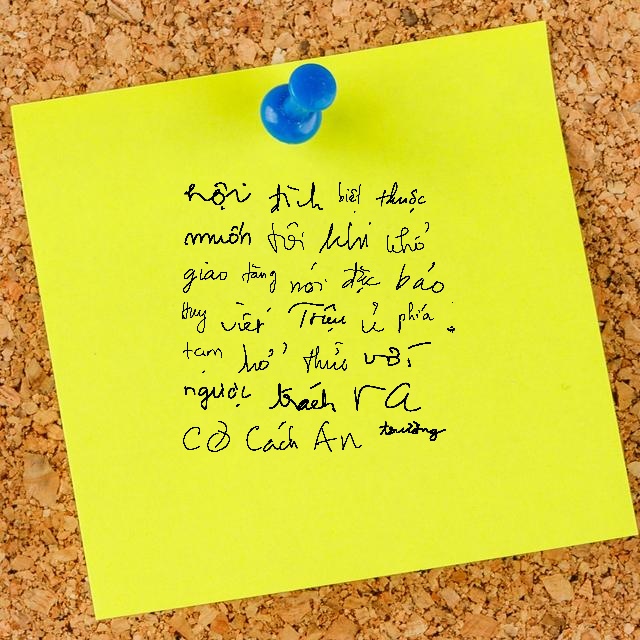 hội tình biệt thuộc
muốn tôi khi khổ
giao tầng nói đặc báo
huy viết Triệu ủ phía :
tạm hổ thủ với
ngược trách ra
cờ Cách Ấn trường